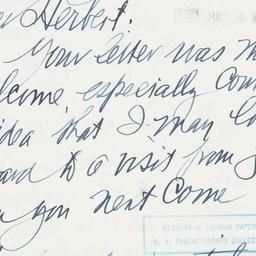 Herbert:
Your letter was m
lcome, especially com
idea that I may lo
ard to a visit from
you next come
HERBERT H. LEHMAN PAPERS
N. Y. PUBLIC LIBRARY COLLECT